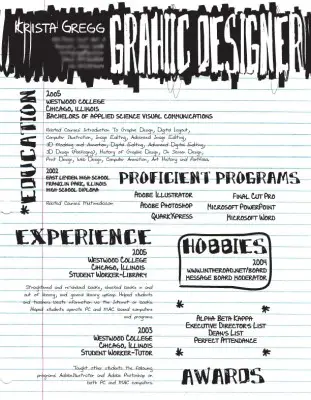 Krista Gregg
GRAHIC DESIGNER
*EDUCATION
2005
Westwood College
Chicago, Illinois
Bachelors of Applied Science Visual Communications
Related Courses: Introduction To Graphic Design, Digital Layout,
Computer Illustration, Image Editing, Advanced Image Editing,
3D Modeling and Animation, Digital Editing, Advanced Digital Editing,
3D Design (Packaging), History of Graphic Design, On Screen Design,
Print Design, Web Design, Computer Animation, Art History and Portfolio.
2002
East Leyden High School
Franklin Park, Illinois
High School Diploma
Related Courses: Multimedia
PROFICIENT PROGRAMS
Adobe Illustrator
Final Cut Pro
Adobe Photoshop
Microsoft PowerPoint
QuarkXpress
Microsoft Word
EXPERIENCE
2005
Westwood College
Chicago, Illinois
Student Worker-Library
Straightened and re-shelved books, checked books in and
out of library, and general library upkeep. Helped students
and teachers locate information via the Internet or books.
Helped students operate PC and MAC based computers
and programs.
2003
Westwood College
Chicago, Illinois
Student Worker-Tutor
Taught other students the following
programs: Adobe Illustrator and Adobe Photoshop on
both PC and MAC computers
HOBBIES
2004
www.intheroad.net/board
Message Board Moderator
* *
Alpha Beta Kappa
Executive Director's List
Dean's List
Perfect Attendance
* *
AWARDS